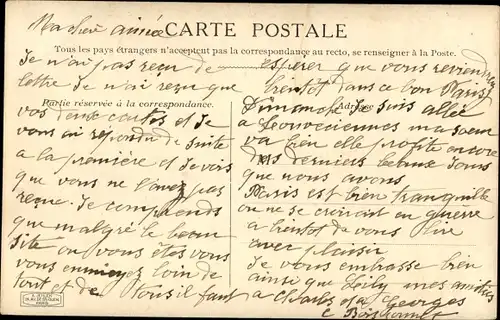 Ma chère aimée
CARTE POSTALE
Tous les pays étrangers n'acceptent pas la correspondance au recto, se renseigner à la Poste.
Je n'ai pas reçu de
lettre Je n'ai reçu que
Partie réservée à la correspondance.
vos deux cartes et je
vous ai répondu de suite
a la première et je vois
que vous ne l'avez pas
reçue. Je comprends
que malgré le beau
site ou vous êtes vous
vous ennuyez loin de
tout et de tous il faut
espérer que vous reviendrez
bientôt dans ce bon Paris
Adresse
Dimanche je suis allée
a Louveciennes ma sœur
va bien elle profite encore
des derniers beaux jours
que nous avons
Paris est bien tranquille
on ne se croirait en guerre
a bientôt de vous lire
avec plaisir
Je vous embrasse bien
ainsi que Lily mes amitiés
a Charles et a Georges